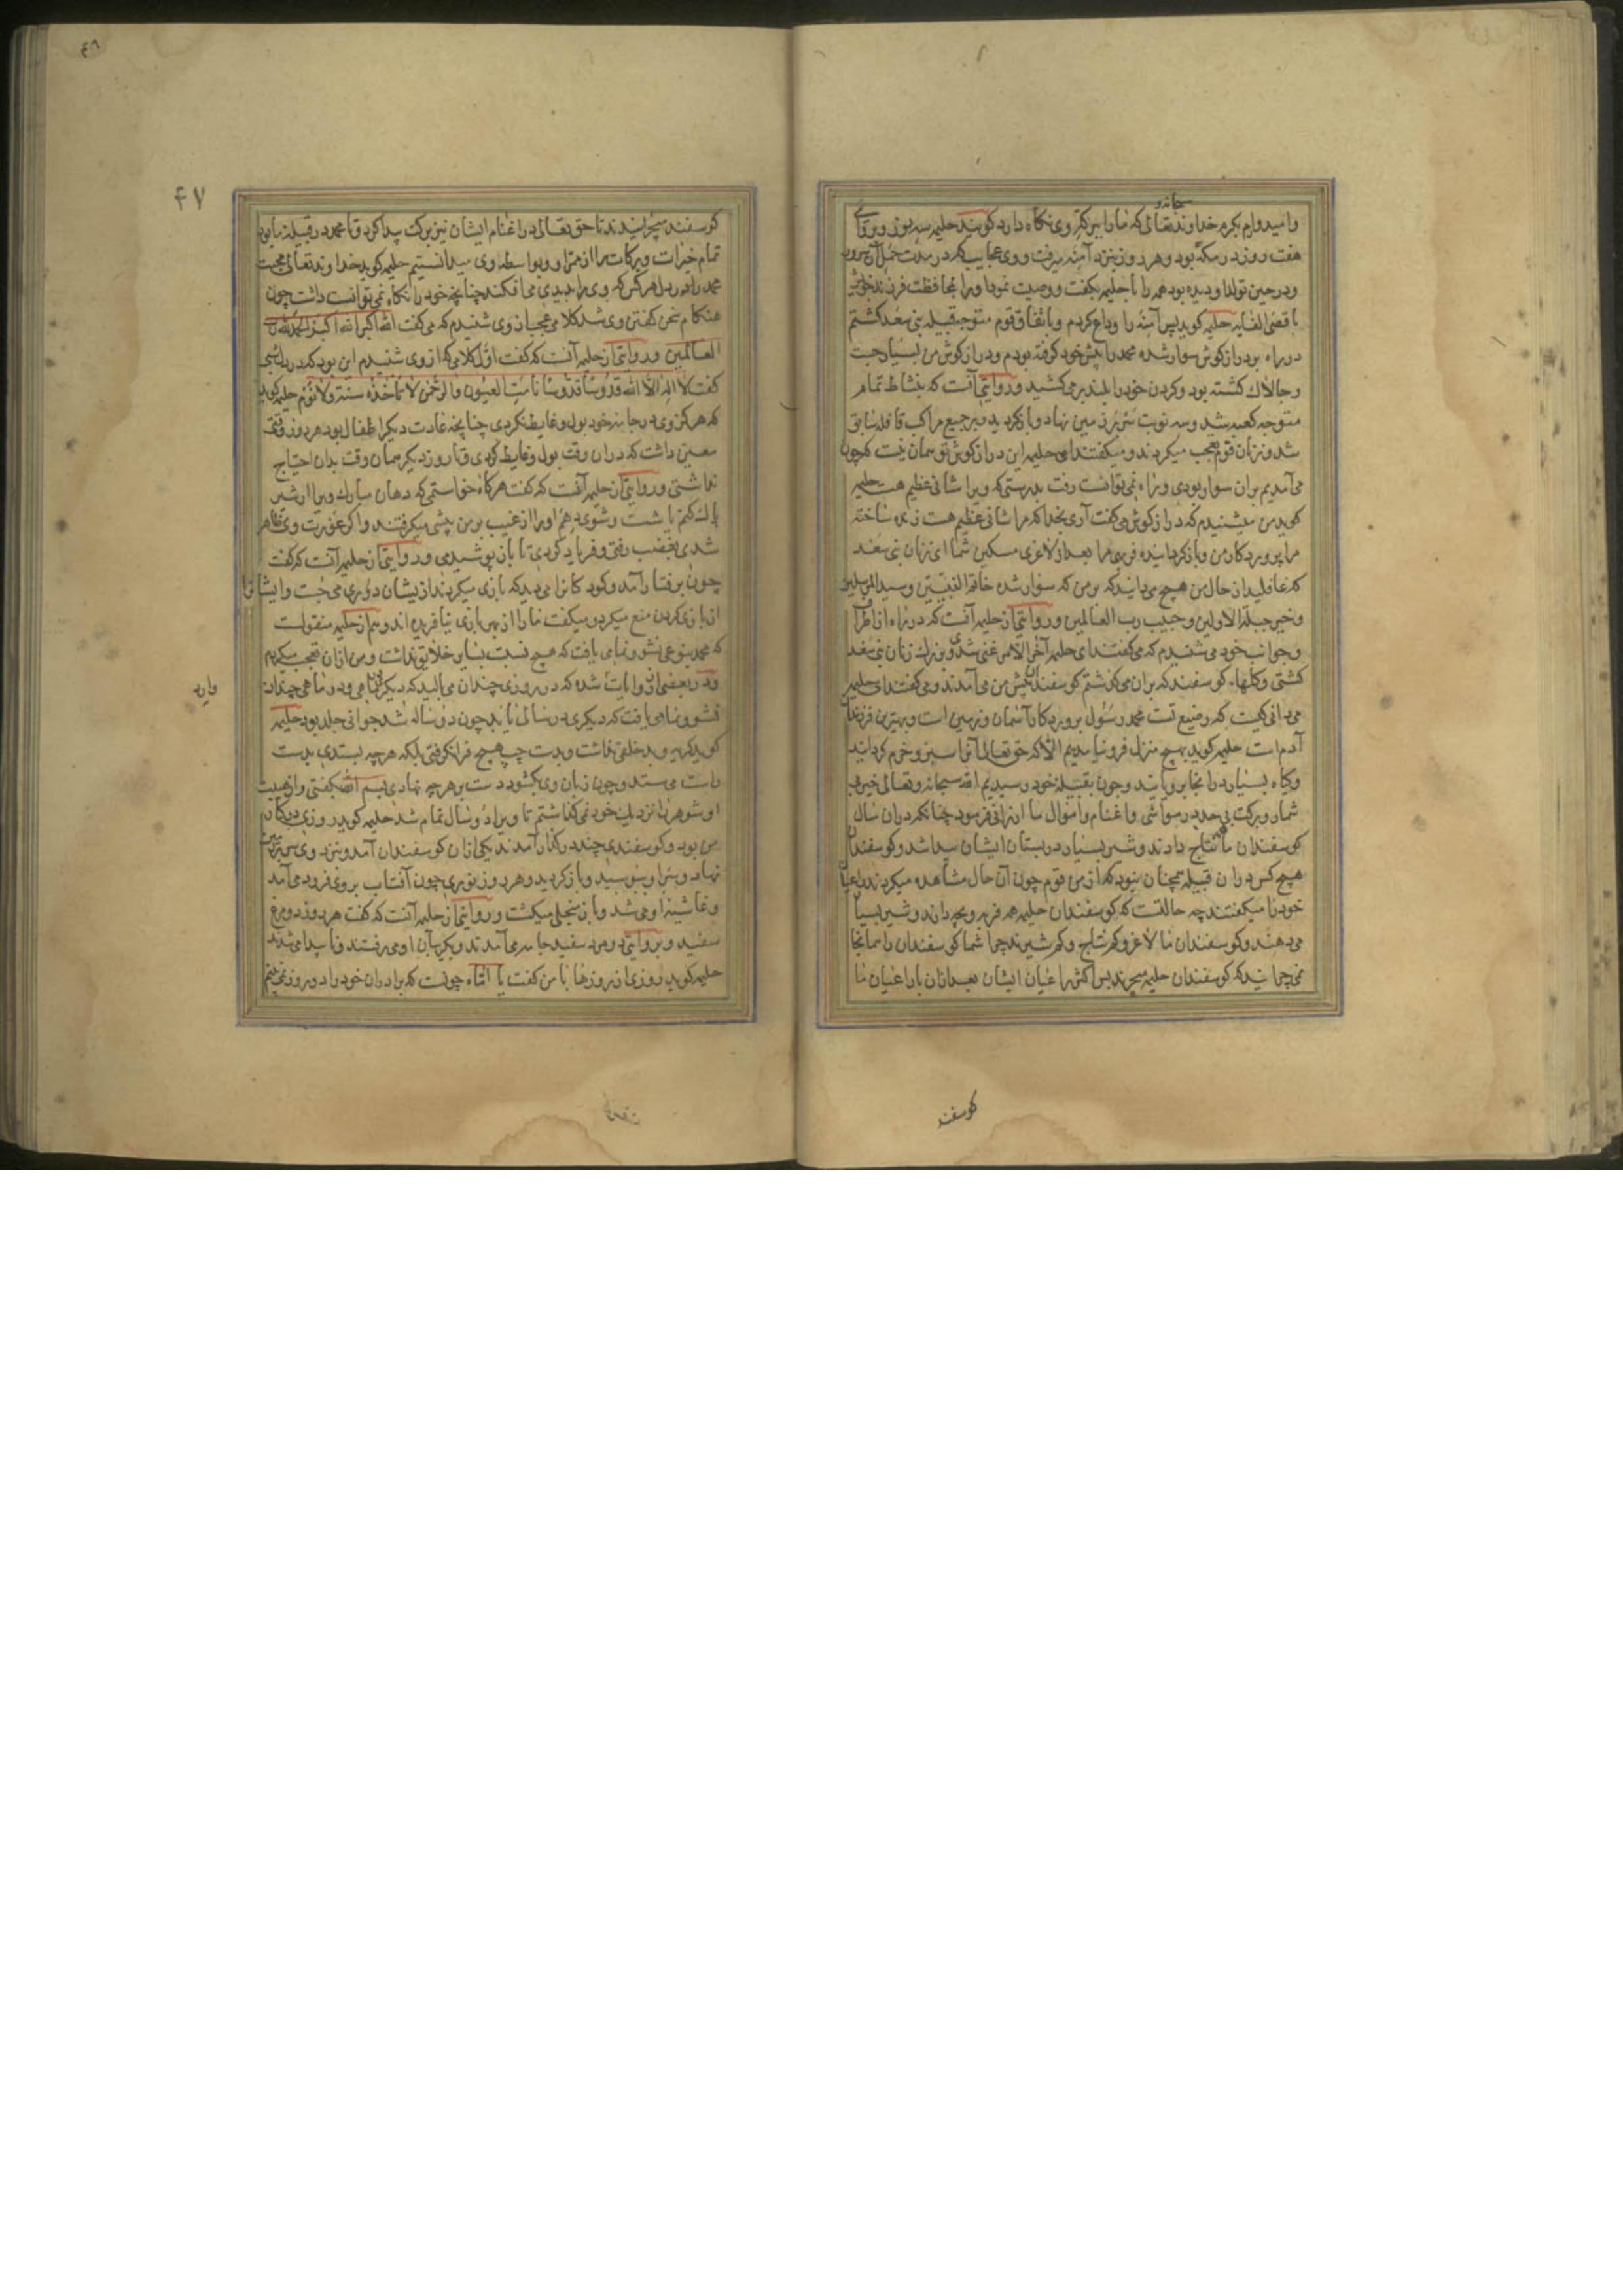 سبحانه و
وامیدوارم بکرم خداوند تعالی که مارا ببرکت وی نکاه دارد کویند حلیمه سه روز وبروایتی
هفت روز در مکه بود وهر روز بنزد آمنه میرفت ووی عجایب که در مدت حمل آنحضرت
ودر حین تولد او دیده بود همه را با حلیمه بکفت ووصیت نمود اورا بمحافظت فرزند خویش
باقصی الغایه حلیمه کوید پس آمنه را وداع کردم وباتفاق قوم متوجه قبیله بنی سعد کشتم
در راه بر دراز کوش سوار شده محمد را پیش خود کرفته بودم ودراز کوش من بسیار چست
وچالاک کشته بود وکردن خود را بلند بر می کشید ودر روایتی آنست که بنشاط تمام
متوجه کعبه شد وسه نوبت سر بر زمین نهاد وباز کردید وبر جمیع مراکب قافله سابق
شد وزنان قوم تعجب میکردند ومیکفتند ای حلیمه این دراز کوش تو همان نیست که چون
می آمدیم بران سوار بودی وراه نمی توانست رفت بدرستی که ویرا شانی عظیم هست حلیمه
کوید من میشنیدم که دراز کوش می کفت آری بخدا که مرا شانی عظیم هست زنده ساخته
مرا پروردکار من وباز کردانیده فربهی مرا بعد از لاغری مسکین شما ای زنان بنی سعد
که غافلید از حال من هیچ می دانید که بر من که سوار شده خاتم النبیین وسید المرسلین
وخیر جبلة الاولین وحبیب رب العالمین ودر روایتی از حلیمه آنست که در راه از اطراف
وجوانب خود می شنیدم که می کفتند ای حلیمه آخر الامر غنی شدی وبزرک زنان بنی سعد
کشتی وکلهاء کوسفند که بران می کذشتم کوسفندان پیش من می آمدند ومی کفتند ای حلیمه
می دانی کیست که رضیع تست محمد رسول پروردکار آسمان وزمین است وبهترین فرزندان
آدم است حلیمه کوید بهیچ منزل فرو نیامدیم الا که حق تعالی آنرا سبز وخرم کردانید
وکیاه بسیار در انجا برویانید وچون بقبیله خود رسیدیم الله سبحانه وتعالی خیر بی
شمار وبرکت بی حد در مواشی واغنام واموال ما ارزانی فرمود چنانکه دران سال
کوسفندان ما نتایج دادند وشیر بسیار در پستان ایشان پیدا شد وکوسفندان
هیچ کس دران قبیله همچنان نبود که از من قوم چون آن حال مشاهده میکردند راعیان
خود را میکفتند چه حالتست که کوسفندان حلیمه همه فربه وبچه دارند وشیر بسیار
می دهند وکوسفندان ما لاغر وکم نتاج وکم شیرند چرا شما کوسفندان را همانجا
نمی چرانید که کوسفندان حلیمه میچرند پس اکثر راعیان ایشان بعد ازان با راعیان ما
کوسفند
٤٨
۴۷
کوسفند میچرانیدند تا حق تعالی در اغنام ایشان نیز برکت پیدا کرد وتا محمد در قبیله ما بود
تمام خیرات وبرکات را از ممر او وبواسطه وی میدانستیم حلیمه کوید خداوند تعالی محبت
محمد را در دل هر کس که وی را بدیدی می افکند چنانچه خود را نکاه نمی توانست داشت چون
هنکام سخن کفتن وی شد کلامی عجب از وی شنیدم که می کفت الله اکبر الله اکبر الحمد لله رب
العالمین ودر روایتی از حلیمه آنست که کفت اول کلامی که از وی شنیدم این بود که در دل شبی
کفت لا اله الا الله قدوسا قدوسا نامت العیون والرحمن لا تأخذه سنة ولا نوم حلیمه کوید
که هرکز وی در جامه خود بول وغایط نکردی چنانچه عادت دیکر اطفال بود هر روز وقتی
معین داشت که دران وقت بول وغایط کردی وتا روز دیکر همان وقت بدان احتیاج
نداشتی ودر روایتی از حلیمه آنست که کفت هرکاه خواستمی که دهان مبارک ویرا از شیر
پاک کنم یا شست وشوی دهم اورا از غیب بر من پیشی میکرفتند واکر عورت وی ظاهر
شدی بغضب رفتی وفریاد کردی تا باز پوشیدمی ودر روایتی از حلیمه آنست که کفت
چون برفتار آمد وکودکانرا می دید که بازی میکردند از یشان دوری می جست وایشانرا
از بازی کردن منع میکرد ومیکفت مارا از بهر بازی نیافریده اند وهم از حلیمه منقولست
که محمد بنوعی نشو ونما می یافت که هیچ نسبت بسایر خلایق نداشت ومن ازان تعجب میکردم
ودر بعضی از روایات شده که در روزی چندان می بالید که دیکری در ماهی ودر ماهی چندان
وارد
نشو ونما می یافت که دیکری در سالی تا بد چون دو ساله شد جوانی جلد بود حلیمه
کوید کریه وبد خلقی نداشت وبدست چپ هیچ فرا نکرفتی بلکه هرچه بستدی بدست
راست می ستد وچون زبان وی بکشود دست بر هرچه نهادی بسم الله بکفتی واز هیبت
او شوهر را نزدیک خود نمی کذاشتم تا ویرا دو سال تمام شد حلیمه کوید روزی در کنار
من بود وکوسفندی چند در کنار آمدند یکی ازان کوسفندان آمد ونزد وی سر بر زمین
نهاد وسر او ببوسید وباز کردید وهر روز نوری چون آفتاب بر وی فرود می آمد
وغاشیه او می شد وباز منجلی میکشت ودر روایتی از حلیمه آنست که کفت هر روز دو مرغ
سفید وبروایتی دو مرد سفید جامه می آمدند وبکریبان او می رفتند وناپیدا می شدند
حلیمه کوید روزی از روزها با من کفت یا اماه چونست که برادران خود را در روز نمی بینم